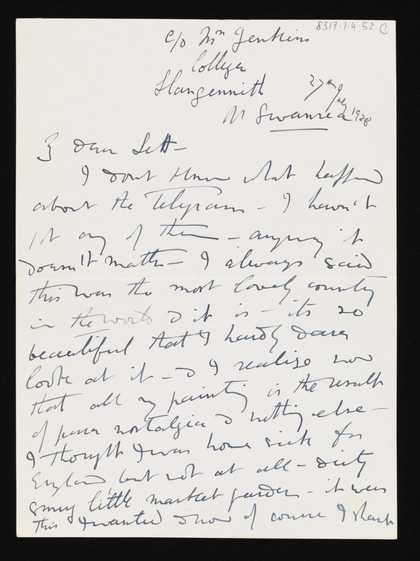 8317.1.4.52 C
c/o Mrs Jenkins
College
Llangennith
Nr Swansea 1928
My Dear Lett -
I dont know what happened
about the Telegrams - I haven't
got any of them - anyway it
doesn't matter - I always said
this was the most lovely country
in the world & it is - its so
beautiful that I hardly dare
look at it - & I realise now
that all my painting is the result
of pure nostalgia & nothing else -
I thought I was home sick for
England but not at all - dirty
smug little market garden - it was
this I wanted & now of course I shall